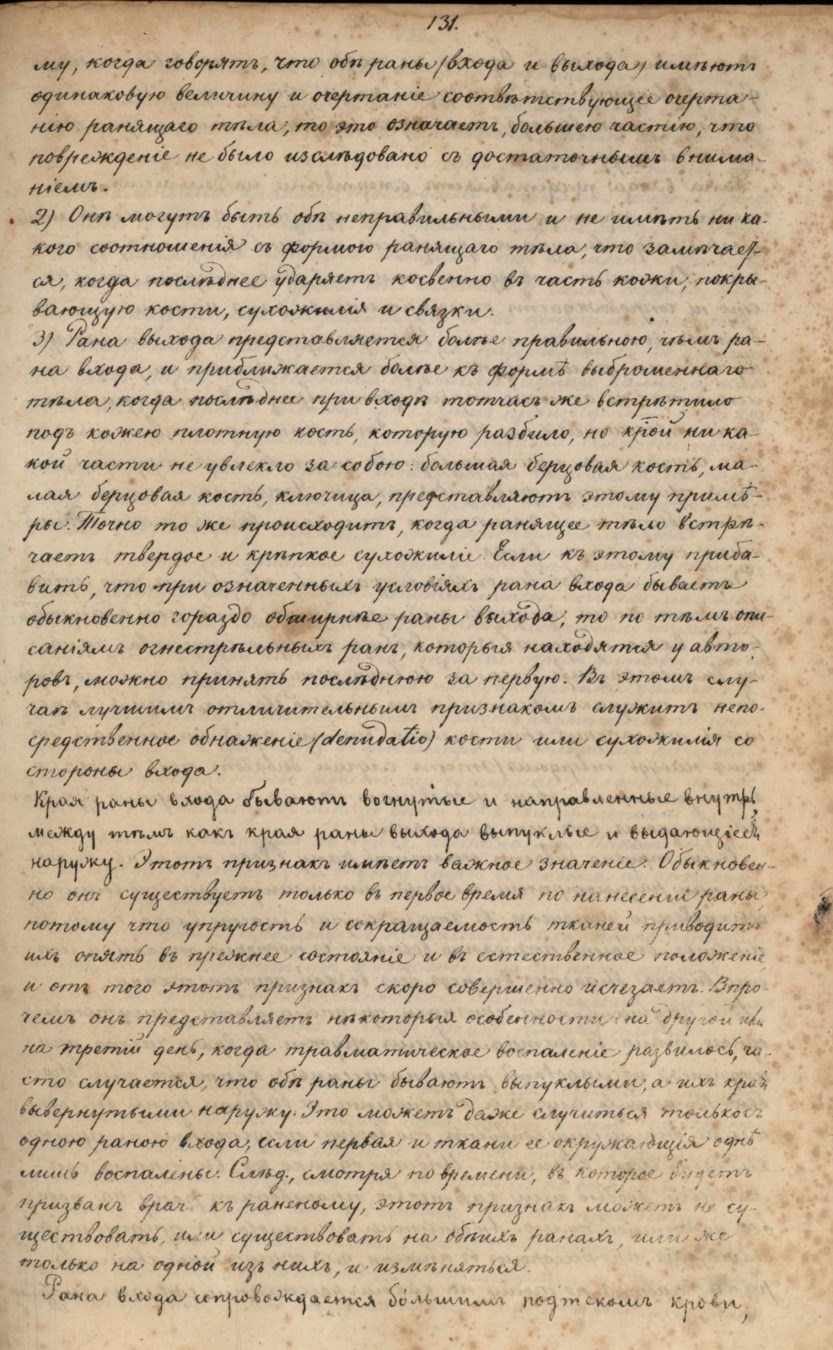 131.
му, когда говорятъ, что обѣ раны (входа и выхода) имѣютъ
одинаковую величину и очертаніе соотвѣтствующее очерта-
нію ранящаго тѣла, то это означаетъ, большею частію, что
поврежденіе не было изслѣдовано съ достаточнымъ внима-
ніемъ.
2) Онѣ могутъ быть обѣ неправильными и не имѣть ни ка-
кого соотношенія съ формою ранящаго тѣла, что замѣчает-
ся, когда послѣднее ударяетъ косвенно въ часть кожи, покры-
вающую кости, сухожилія и связки.
3) Рана выхода представляется болѣе правильною, чѣмъ ра-
на входа, и приближается болѣе къ формѣ выброшеннаго
тѣла, когда послѣднее при входѣ тотчасъ же встрѣтило
подъ кожею плотную кость, которую разбило, но крой ни ка-
кой части не увлекло за собою: большая берцовая кость, ма-
лая берцовая кость, ключица, представляютъ этому примѣ-
ры. Точно то же происходитъ, когда ранящее тѣло встрѣ-
чаетъ твердое и крѣпкое сухожиліе. Если къ этому приба-
вить, что при означенныхъ условіяхъ рана входа бываетъ
обыкновенно гораздо обширнѣе раны выхода, то по тѣмъ опи-
саніямъ огнестрѣльныхъ ранъ, которыя находятся у авто-
ровъ, можно принять послѣднюю за первую. Въ этомъ слу-
чаѣ лучшимъ отличительнымъ признакомъ служитъ непо-
средственное обнаженіе (denudatio) кости или сухожилія со
стороны входа.
Края раны входа бываютъ вогнутые и направленные внутрь,
между тѣмъ какъ края раны выхода выпуклые и выдающіеся
наружу. Этотъ признакъ имѣетъ важное значеніе. Обыкновен-
но онъ существуетъ только въ первое время по нанесеніи раны,
потому что упругость и сокращаемость тканей приводитъ
ихъ опять въ прежнее состояніе и въ естественное положеніе
и отъ того этотъ признакъ скоро совершенно исчезаетъ. Впро-
чемъ онъ представляетъ нѣкоторыя особенности: на другой или
на третій день, когда травматическое воспаленіе развилось, ча-
сто случается, что обѣ раны бываютъ выпуклыми, а ихъ края
вывернутыми наружу. Это можетъ даже случиться только съ
одною раною входа, если первая и ткани ее окружающія однѣ
лишь воспалены. Слѣд., смотря по времени, въ которое будетъ
призванъ врачъ къ раненому, этотъ признакъ можетъ не су-
ществовать, или существовать на обѣихъ ранахъ, или же
только на одной изъ нихъ, и измѣняться.
Рана входа сопровождается бо́льшимъ подтекомъ крови,